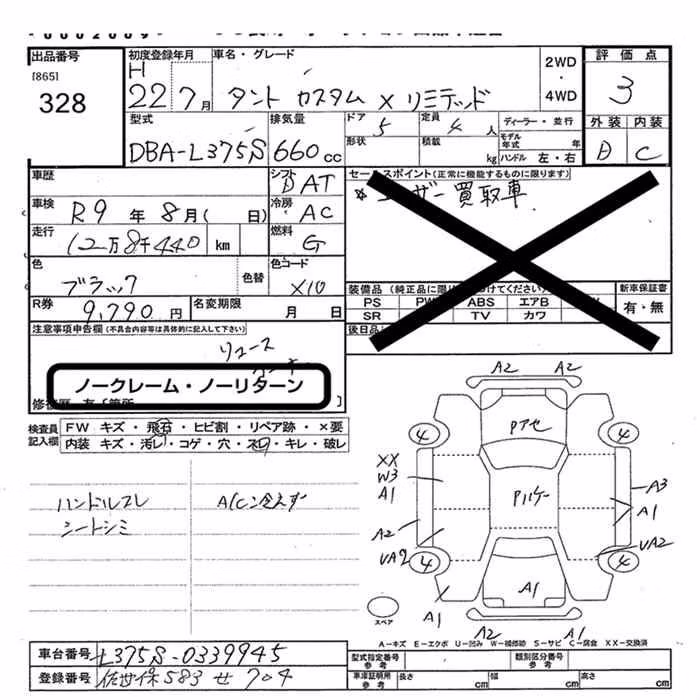 出品番号
[865]
328
初度登録年月
H 22 7月
車名・グレード
タント カスタム X リミテッド
2WD
・
4WD
評価点
3
外装 内装
D C
型式
DBA-L375S
排気量
660cc
ドア
5
定員
4人
形状
積載
kg
ディーラー・並行
モデル年式 年
ハンドル 左・右
車歴
シフト
DAT
車検
R9年 8月( 日)
冷房
AC
走行
12万8千440 km
燃料
G
色
ブラック
色替
色コード
X10
R券
9,790円
名変期限
月 日
セールスポイント(正常に機能するものに限ります)
ユーザー買取車
装備品
PS
ABS
エアB
SR
TV
カワ
新車保証書
有・無
後日品
注意事項申告欄(不具合内容等は具体的に記入して下さい)
リユース
ノークレーム・ノーリターン
検査員記入欄
FW キズ・飛石・ヒビ割・リペア跡・×要
内装 キズ・汚レ・コゲ・穴・スレ・キレ・破レ
ハンドルスレ
シートシミ
A/C冷えず
A2 A2
4 4
Pアセ
XX
W3
A1
Pハゲー
A3
A1
A2
UA2
UA2
4 4
A1
A1
A2 A1
スペア
A-キズ E-エクボ U-凹み W-補修跡 S-サビ C-腐食 XX-交換済
車台番号
L375S-0339945
登録番号
佐世保 583 せ 704
型式指定番号
参考
類別区分番号
参考
車庫証明所
参考
長さ cm
幅 cm
高さ cm